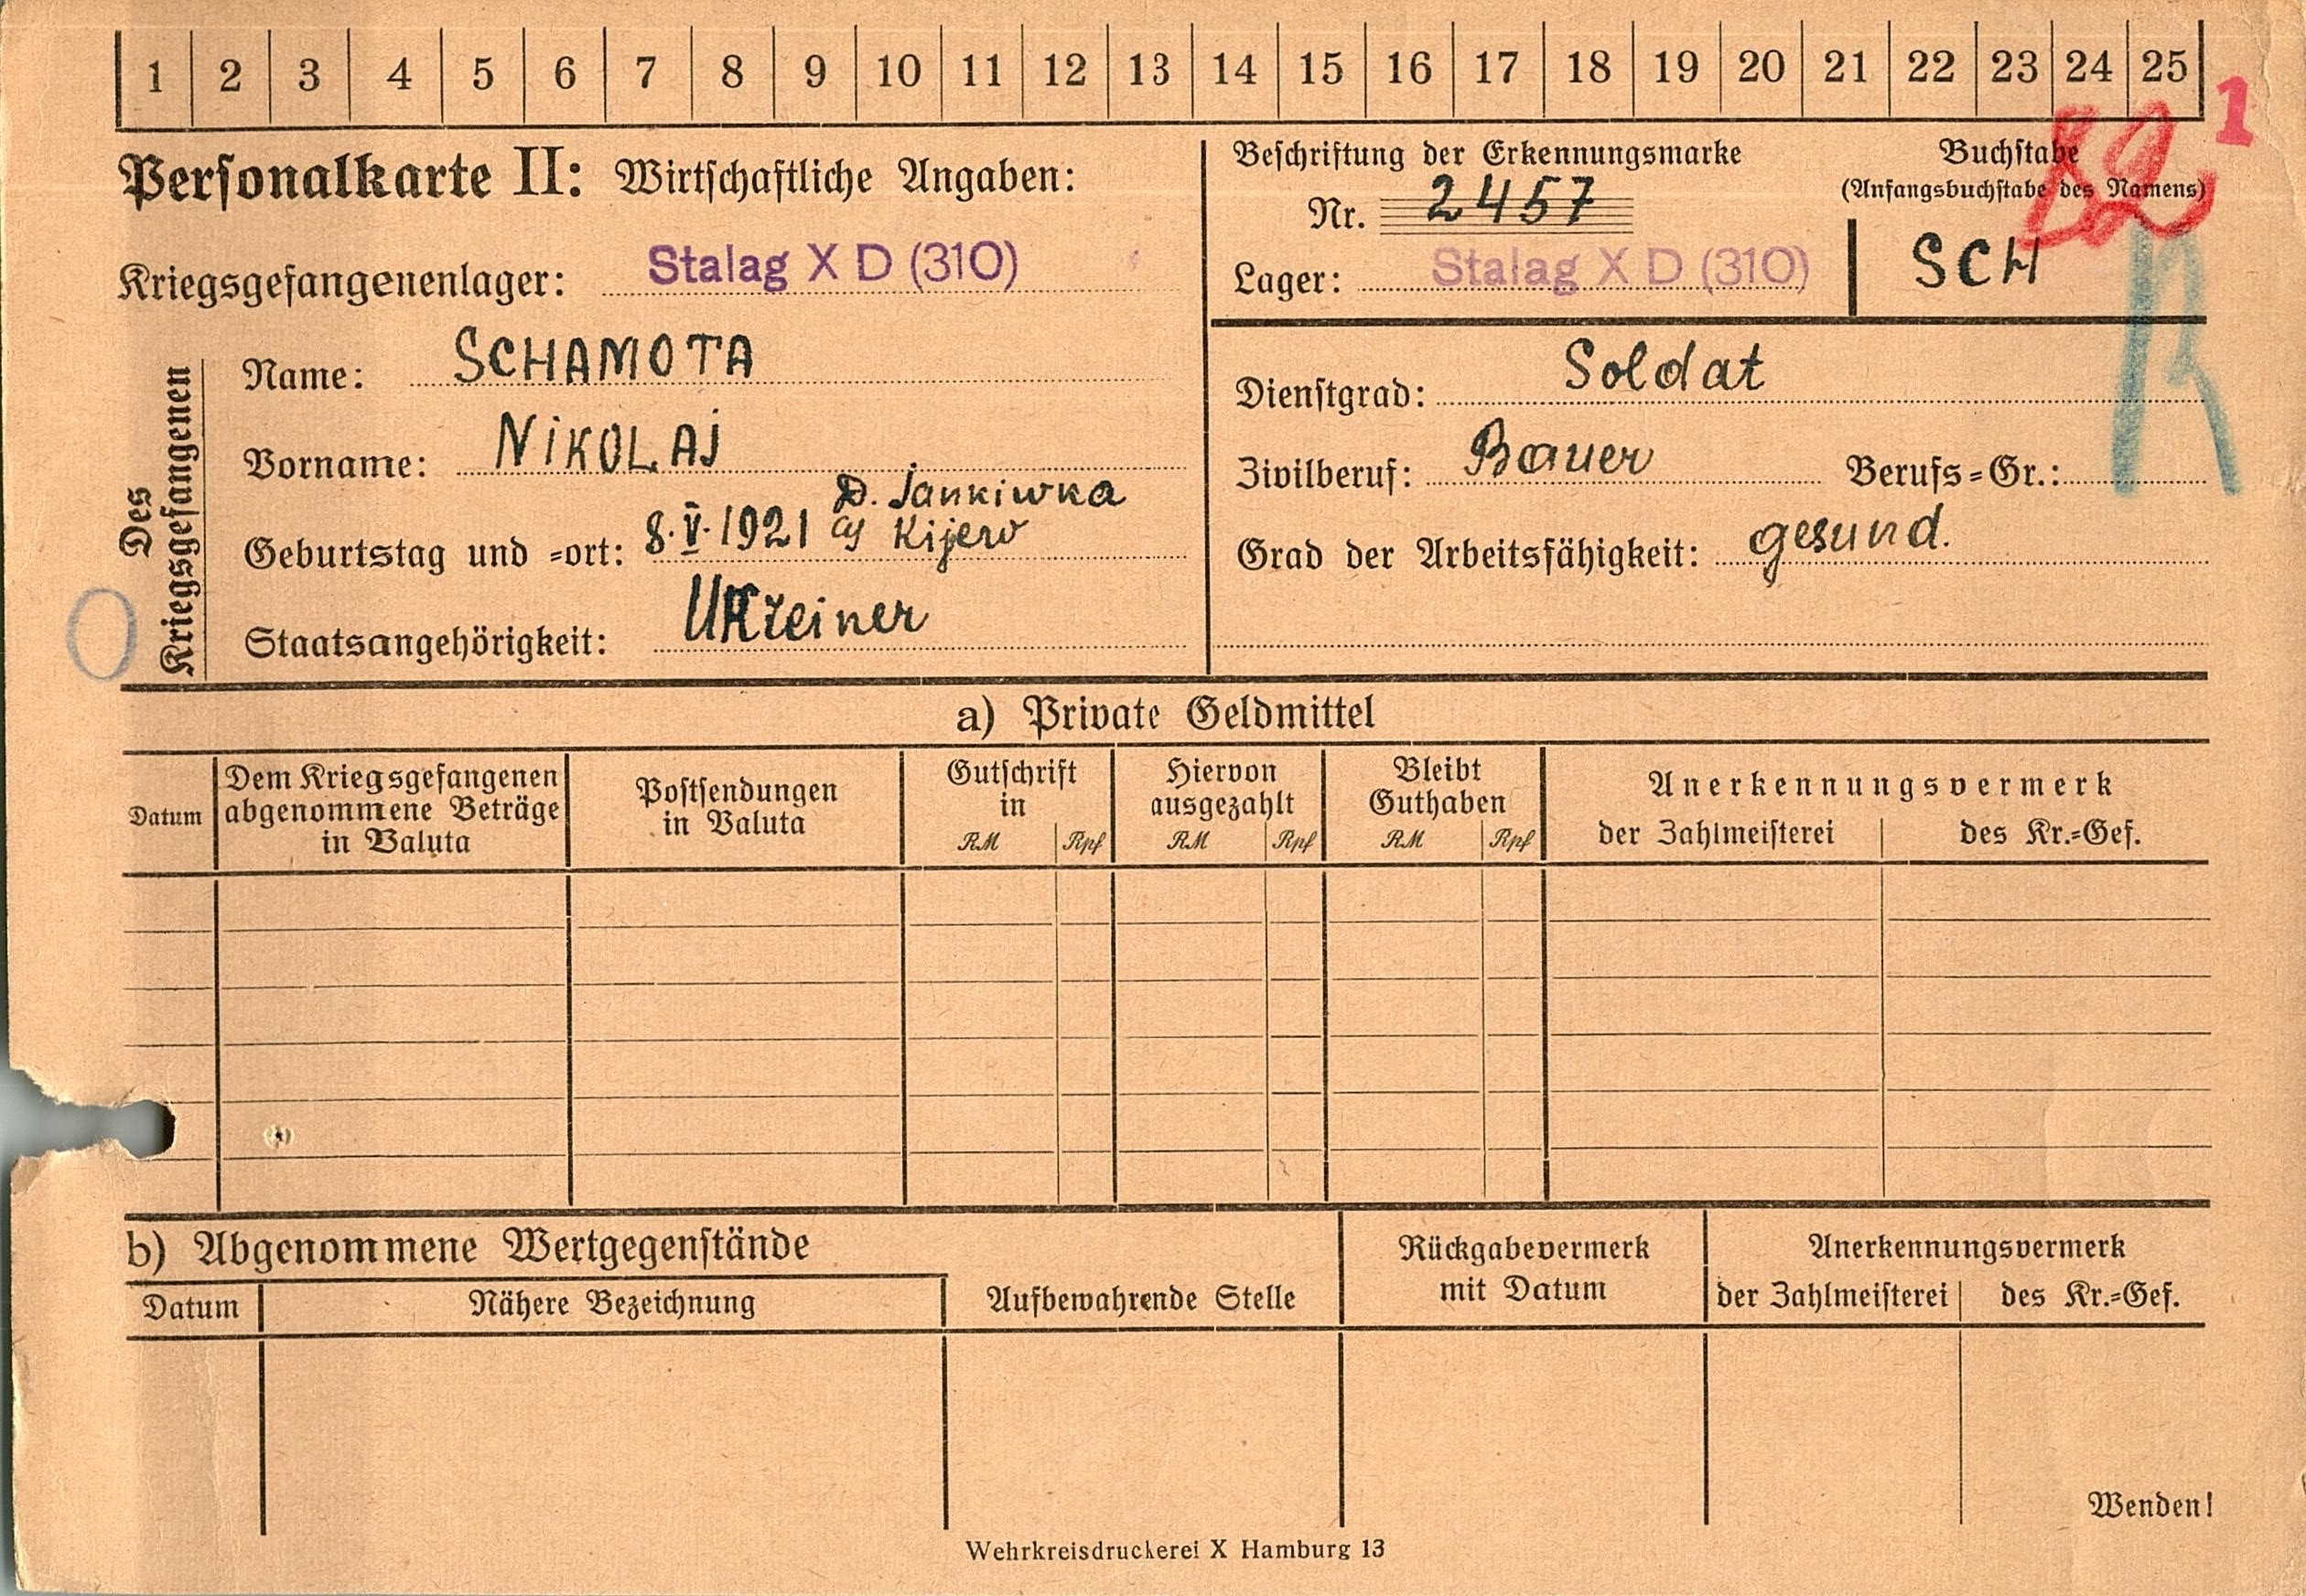 1 2 3 4 5 6 7 8 9 10 11 12 13 14 15 16 17 18 19 20 21 22 23 24 25
1
Personalkarte II: Wirtschaftliche Angaben:
Kriegsgefangenenlager: Stalag X D (310)
Des Kriegsgefangenen
Name: SCHAMOTA
Vorname: NiKOLAJ
D. Jankiwka
Geburtstag und =ort: 8.V.1921 Kijew
Staatsangehörigkeit: UKreiner
Beschriftung der Erkennungsmarke
Nr. 2457
Lager: Stalag X D (310)
Buchstabe
(Anfangsbuchstabe des Namens)
SCH
Dienstgrad: Soldat
Zivilberuf: Bauer Berufs=Gr.:
Grad der Arbeitsfähigkeit: gesund.
a) Private Geldmittel
Datum
Dem Kriegsgefangenen
abgenommene Beträge
in Valuta
Postsendungen
in Valuta
Gutschrift
in
RM Rpf
Hiervon
ausgezahlt
RM Rpf
Bleibt
Guthaben
RM Rpf
Anerkennungsvermerk
der Zahlmeisterei des Kr.=Gef.
b) Abgenommene Wertgegenstände
Datum Nähere Bezeichnung
Aufbewahrende Stelle
Rückgabevermerk
mit Datum
Anerkennungsvermerk
der Zahlmeisterei des Kr.=Gef.
Wenden!
Wehrkreisdruckerei X Hamburg 13